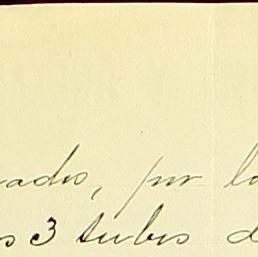 ados, por lo
s 3 tubos d